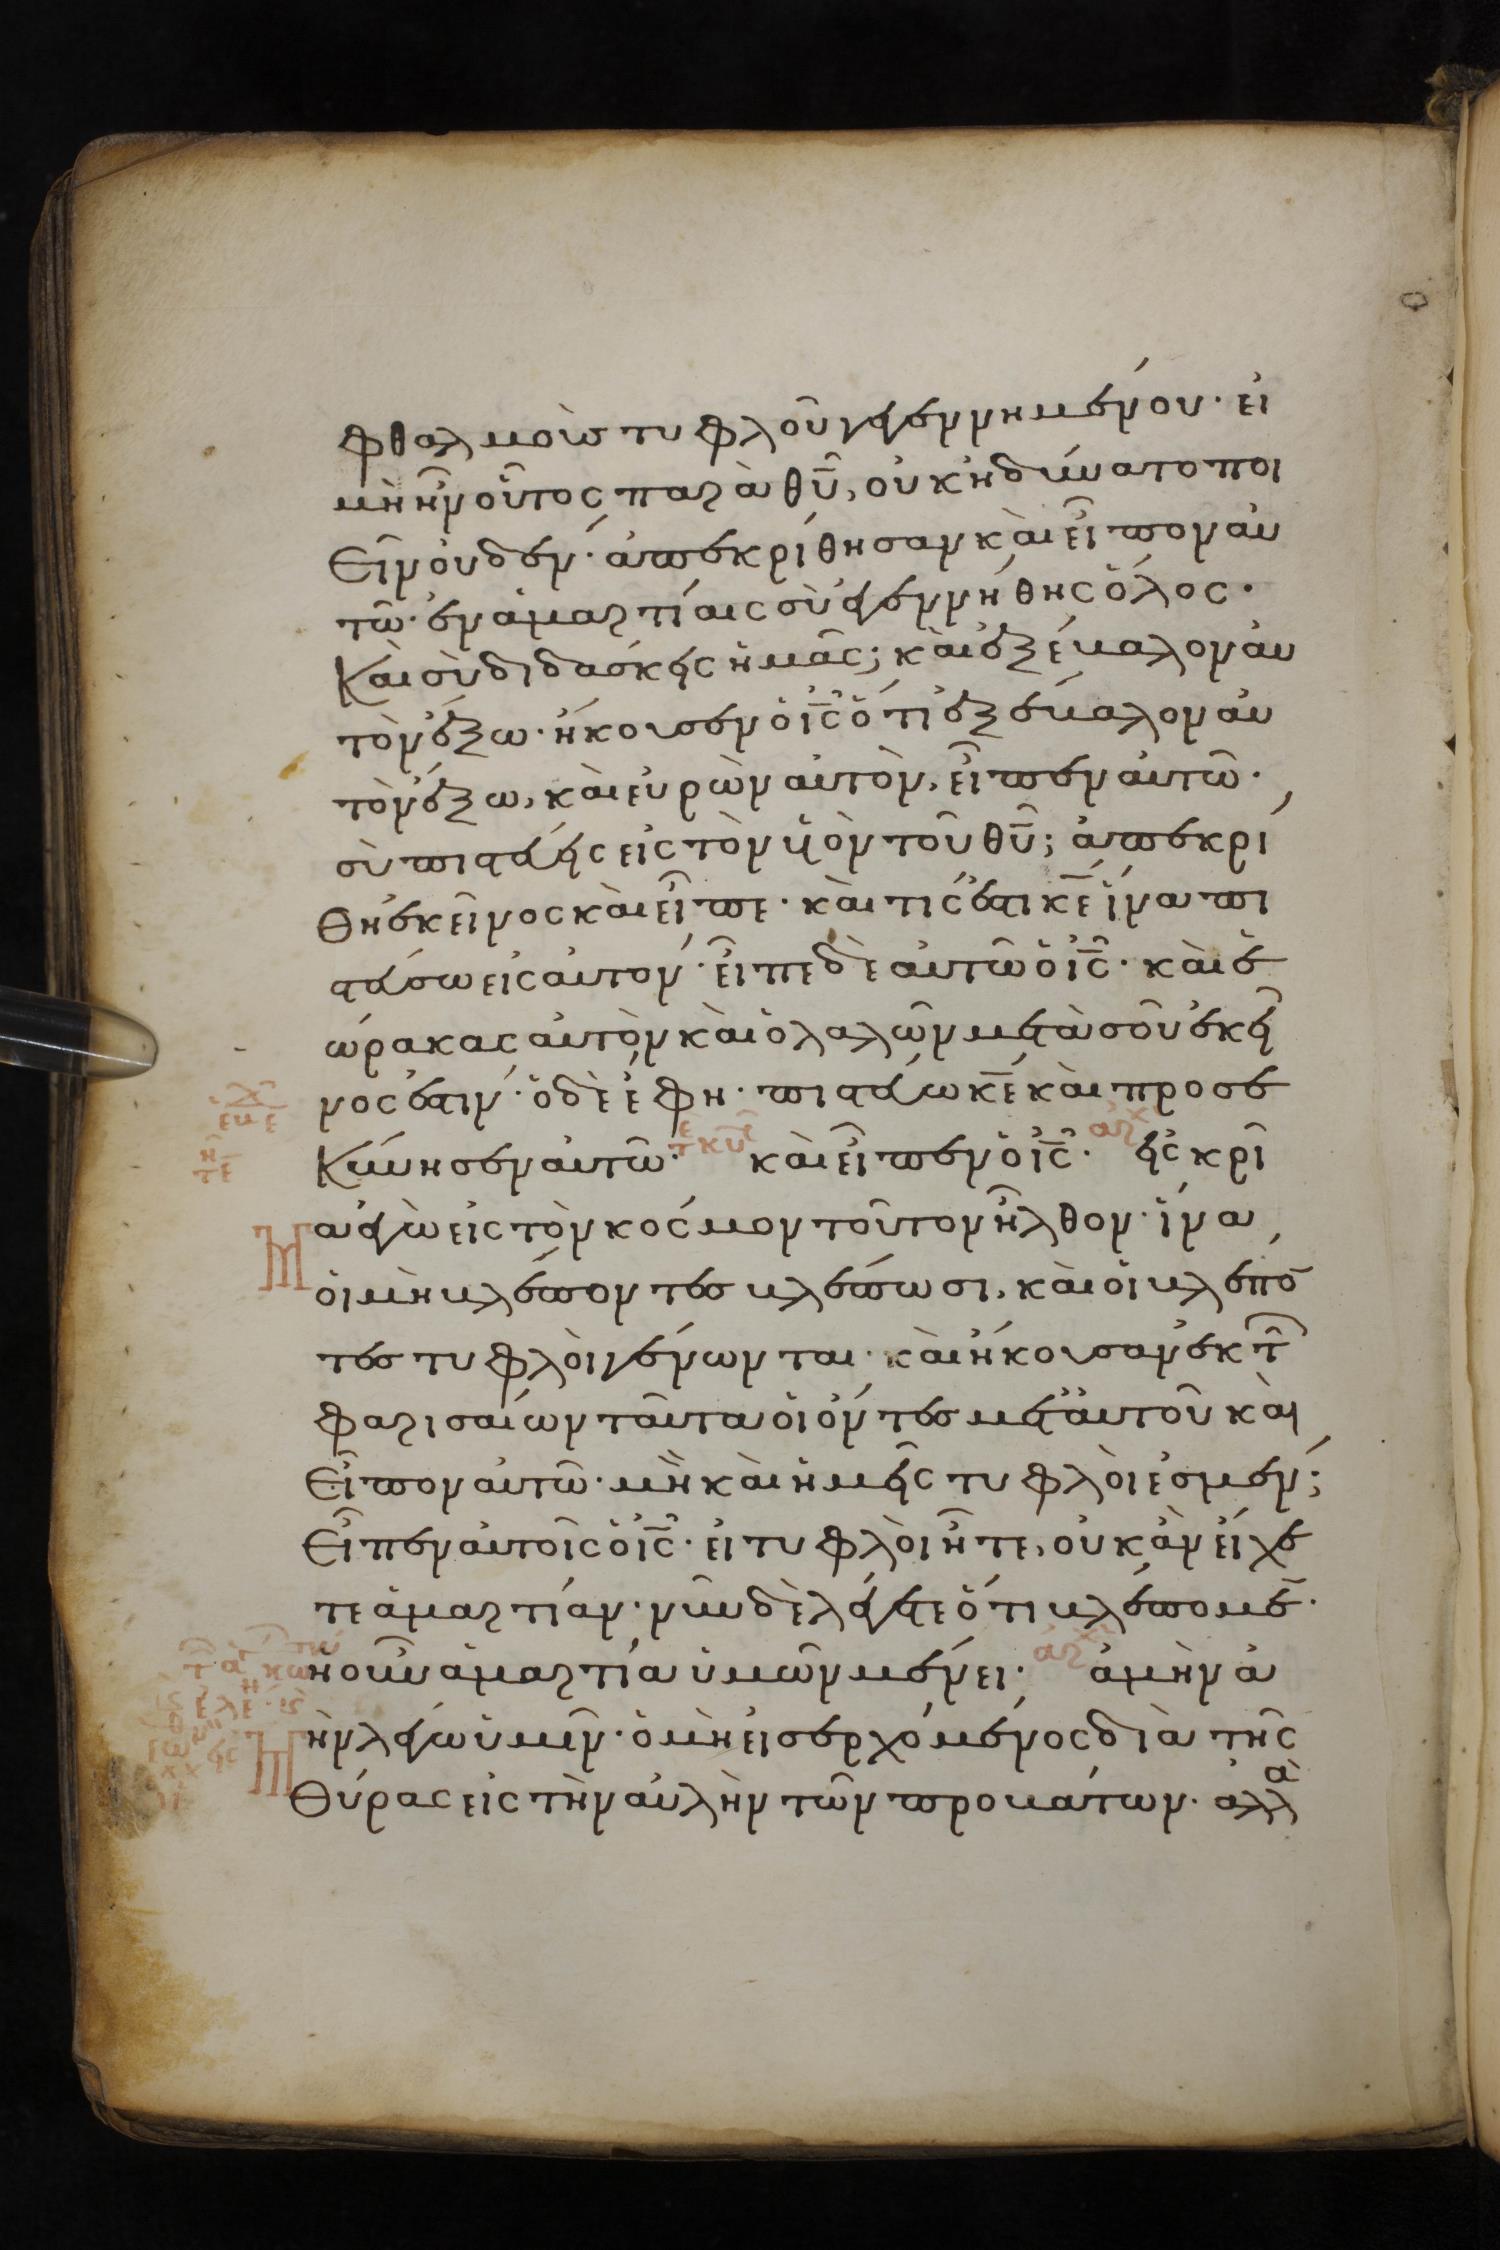 φθαλμοὺς τυφλοῦ γεγεννημένου· εἰ
μὴ ἦν οὗτος παρὰ θυ̅, οὐκ ἠδύνατο ποι
εῖν οὐδέν· ἀπεκρίθησαν καὶ εἶπον αὐ
τῶ· ἐν ἁμαρτίαις σὺ ἐγεννήθης ὅλος·
Καὶ σὺ διδάσκεις ἡμᾶς; καὶ ἐξέβαλον αὐ
τὸν ἔξω· ἤκουσεν ὁ ις̅ ὅτι ἐξέβαλον αὐ
τὸν ἔξω, καὶ εὑρὼν αὐτὸν, εἶπεν αὐτῶ·
σὺ πιστεύεις εἰς τὸν υἱὸν τοῦ θυ̅; ἀπεκρί
θη ἐκεῖνος καὶ εἶπε· καὶ τίς ἐστι κε̅ ἵνα πι
στεύσω εἰς αὐτόν· εἶπε δὲ αὐτῶ ὁ ις̅· καὶ ἑ
ώρακας αὐτὸν καὶ ὁ λαλῶν μετὰ σοῦ ἐκεῖ
νός ἐστιν· ὁ δὲ ἔφη· πιστεύω κε̅ καὶ προσε
Κύνησεν αὐτῶ· καὶ εἶπεν ὁ ις̅· εἰς κρῖ
μα ἐγὼ εἰς τὸν κόσμον τοῦτον ἦλθον· ἵνα
οἱ μὴ βλέποντες βλέπωσι, καὶ οἱ βλέπο̅
τες τυφλοὶ γένωνται· καὶ ἤκουσαν ἐκ τ
φαρισαίων ταῦτα οἱ ὄντες μετ αὐτοῦ καὶ
Εἶπον αὐτῶ· μὴ καὶ ἡμεῖς τυφλοὶ ἐσμέν;
Εἶπεν αὐτοῖς ὁ ις̅· εἰ τυφλοὶ ἦτε, οὐκ ἂν εἴχε
τε ἁμαρτίαν· νῦν δὲ λέγετε ὅτι βλέπομε̅·
ἡ οὖν ἁμαρτία ὑμῶν μένει· ἀμὴν ἀ
μὴν λέγω ὑμῖν· ὁ μὴ εἰσερχόμενος διὰ τῆς
Θύρας εἰς τὴν αὐλὴν τῶν προβάτων· ἀλλὰ